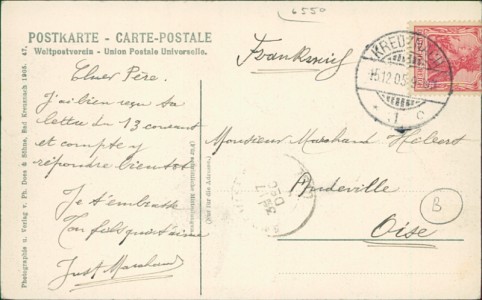 6550
POSTKARTE - CARTE-POSTALE
Weltpostverein - Union Postale Universelle.
Frankreich
KREUZNACH
15.12.05
1 c
Cher Père.
J'ai bien reçu ta
lettre du 13 courant
et compte y
répondre bientôt
Je t'embrasse
Ton fils qui t'aime
Just Marchand
Monsieur Marchand
Andeville
Oise
B
(Nur für die Adresse)
Photographie u. Verlag v. Ph. Dees & Söhne, Bad Kreuznach 1905. 47.